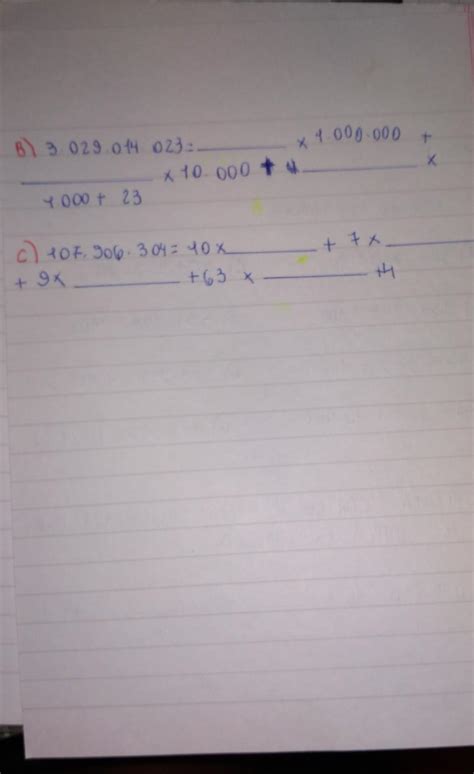 B) 3.029.014.023=________ x 1.000.000 +
________ x 10.000 + ________ x
1000 + 23
C) 107.906.304= 10x________ + 7x________
+ 9x ________ +63 x ________ +4